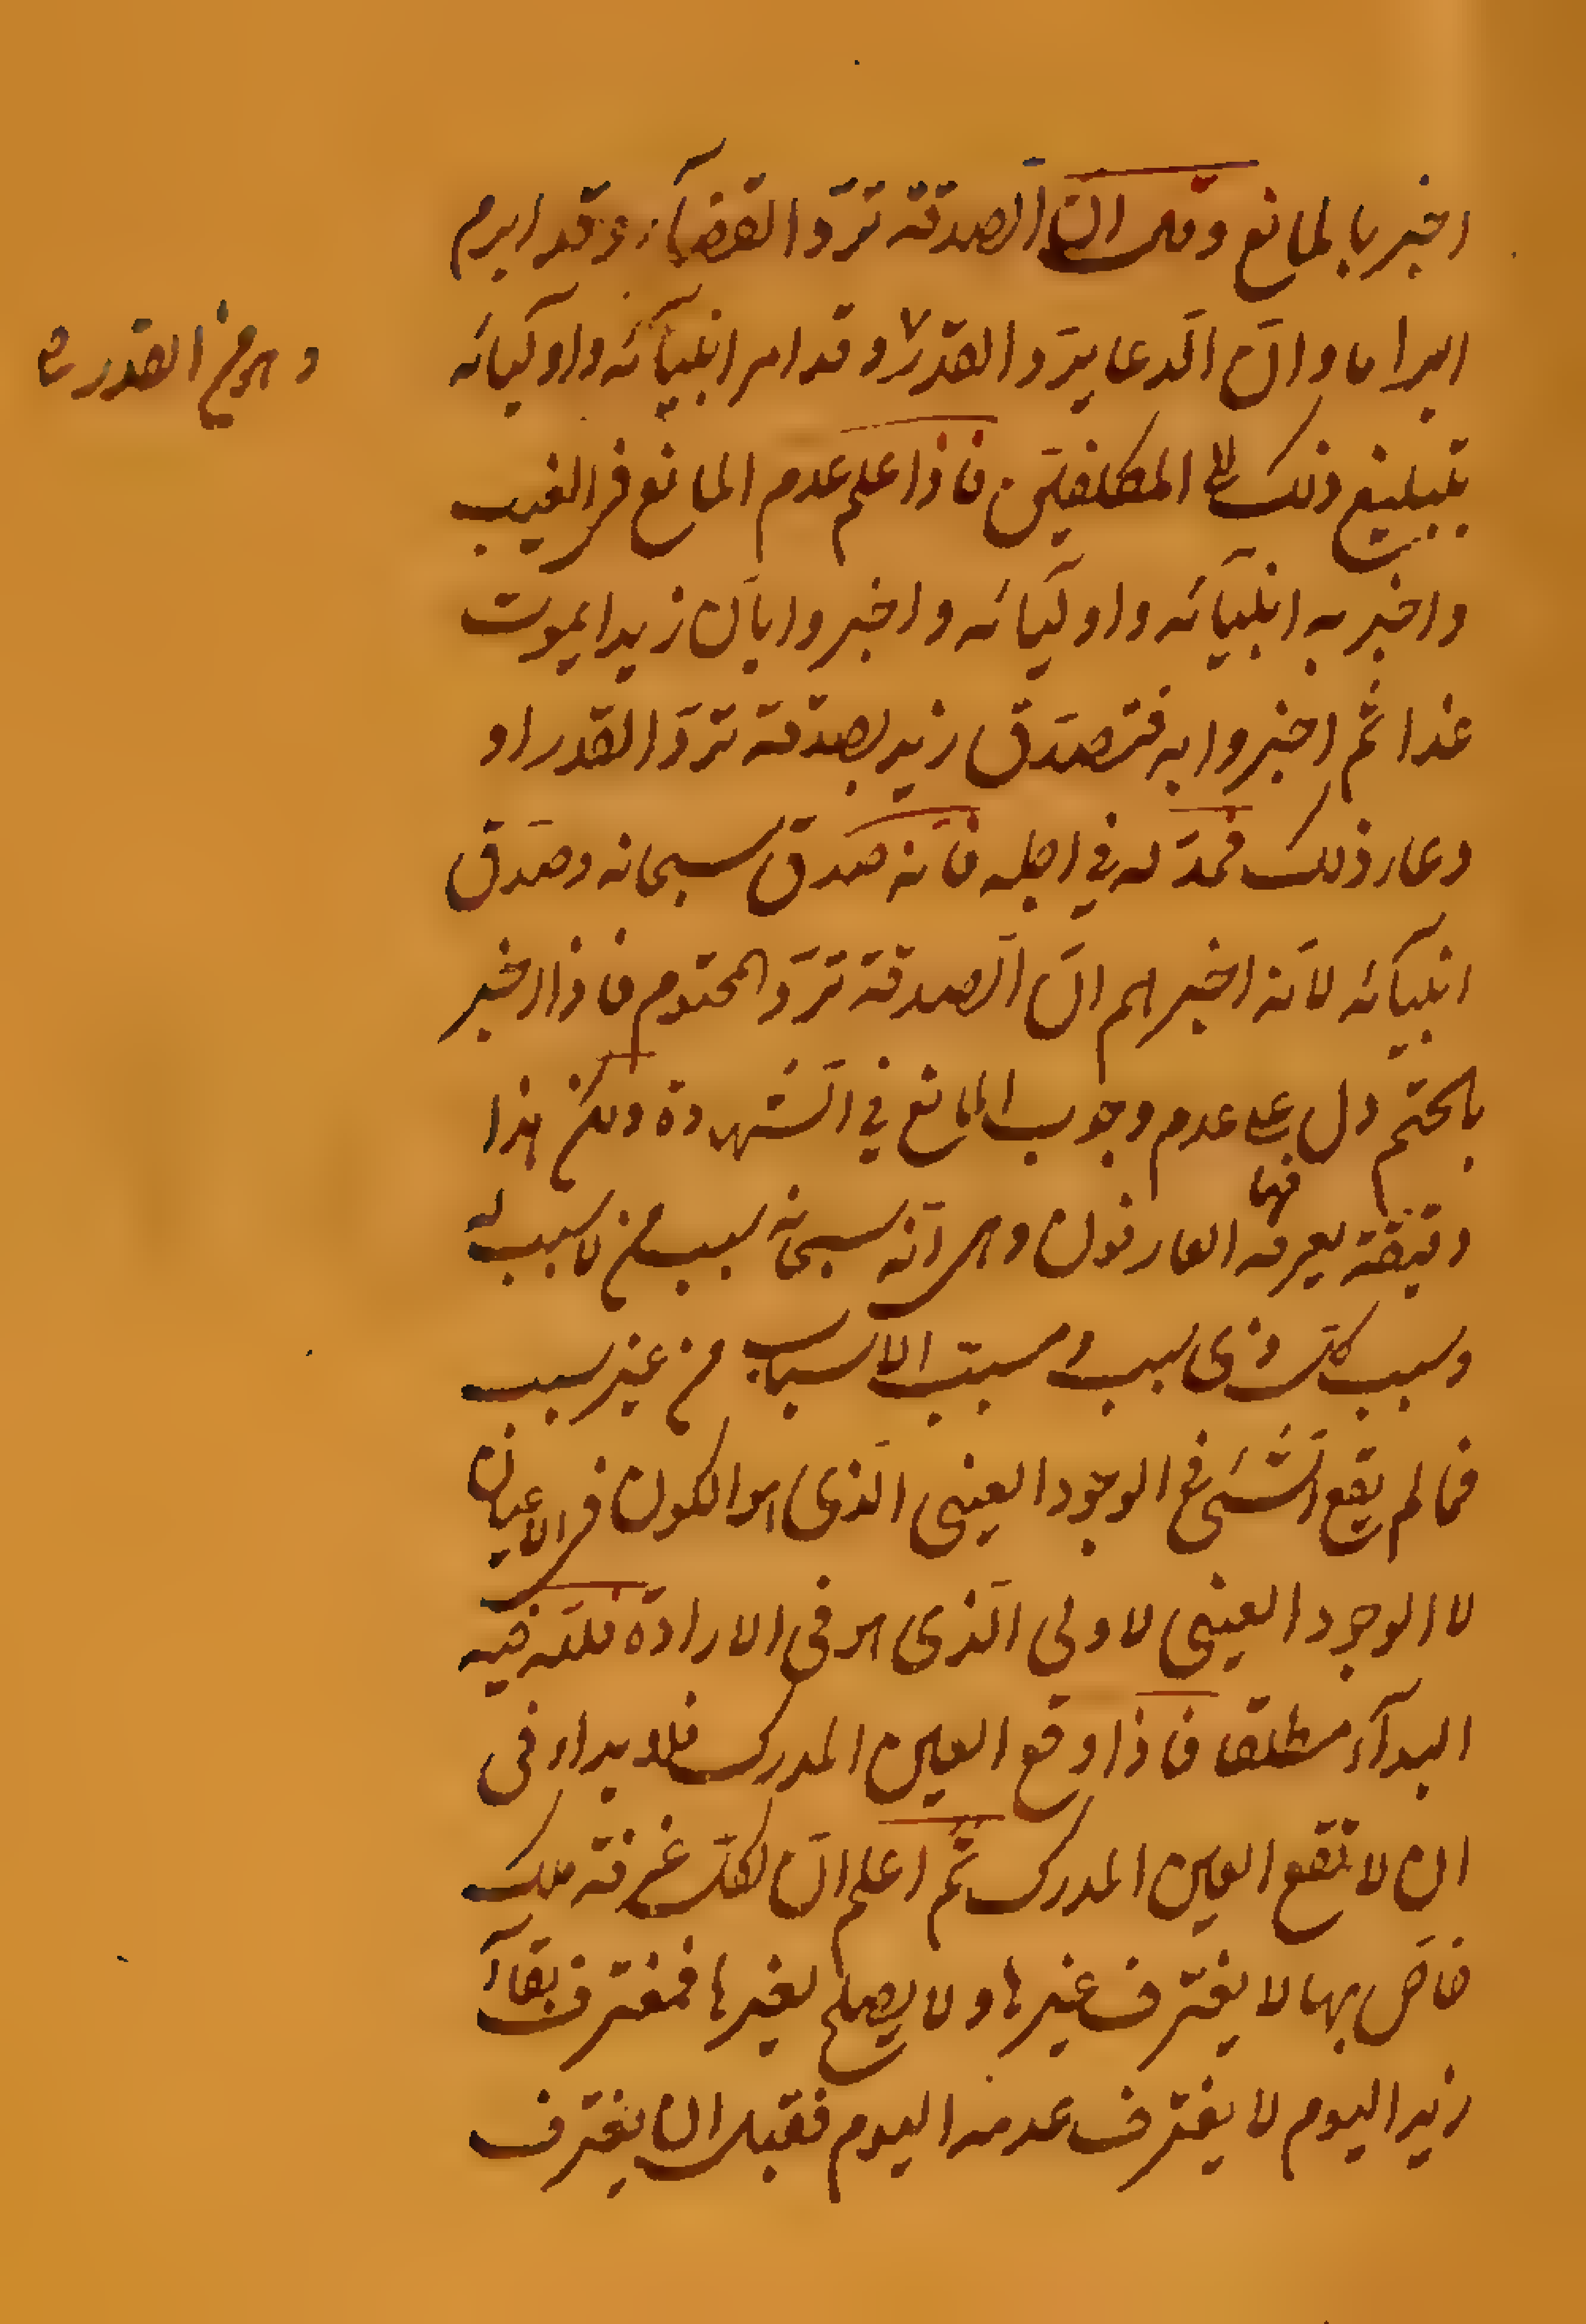 اخبر بالمانع وقال ان الصدقة تردّ القضآء وقد ابرم
ابراما وانّ الدعا يردّ القدر وقد امر انبيآئه واوليائه
وهو من القدر
بتبليغ ذلك الى المكلفين فاذا علم عدم المانع في الغيب
واخبر به انبيآئه واوليائه واخبروا بانّ زيدا يموت
غدا ثم اخبروا به فتصدّق زيد بصدقة تردّ القدر او
دعا بذلك فمدّ له في اجله فانّه صدق سبحانه وصدّق
انبيآئه لانّه اخبرهم انّ الصدقة تردّ المحتوم فاذا اخبر
بالحتم دل على عدم وجوب المانع في الشهادة ولكن هذا
دقيقة يعرفها العارفون وهي انّه سبحانه سبب من لا سبب له
وسبب كلّ ذي سبب ومسبّب الاسباب من غير سبب
فما لم يقع الشئ في الوجود العيني الذي هو الكون في الاعيان
لا الوجود العيني لاولي الّذي هو في الارادة فللّه فيه
البدآء مطلقا فاذا وقع العين المدرك فلا بداء في
ان لا تقع العين المدرك ثم اعلم انّ لكلّ غرفة ملك
خاصّ بها لا يغترف غيرها ولا يصلح لغيرها فمغترف بقآء
زيد اليوم لا يغترف عدمه اليوم فقبل ان يغترف